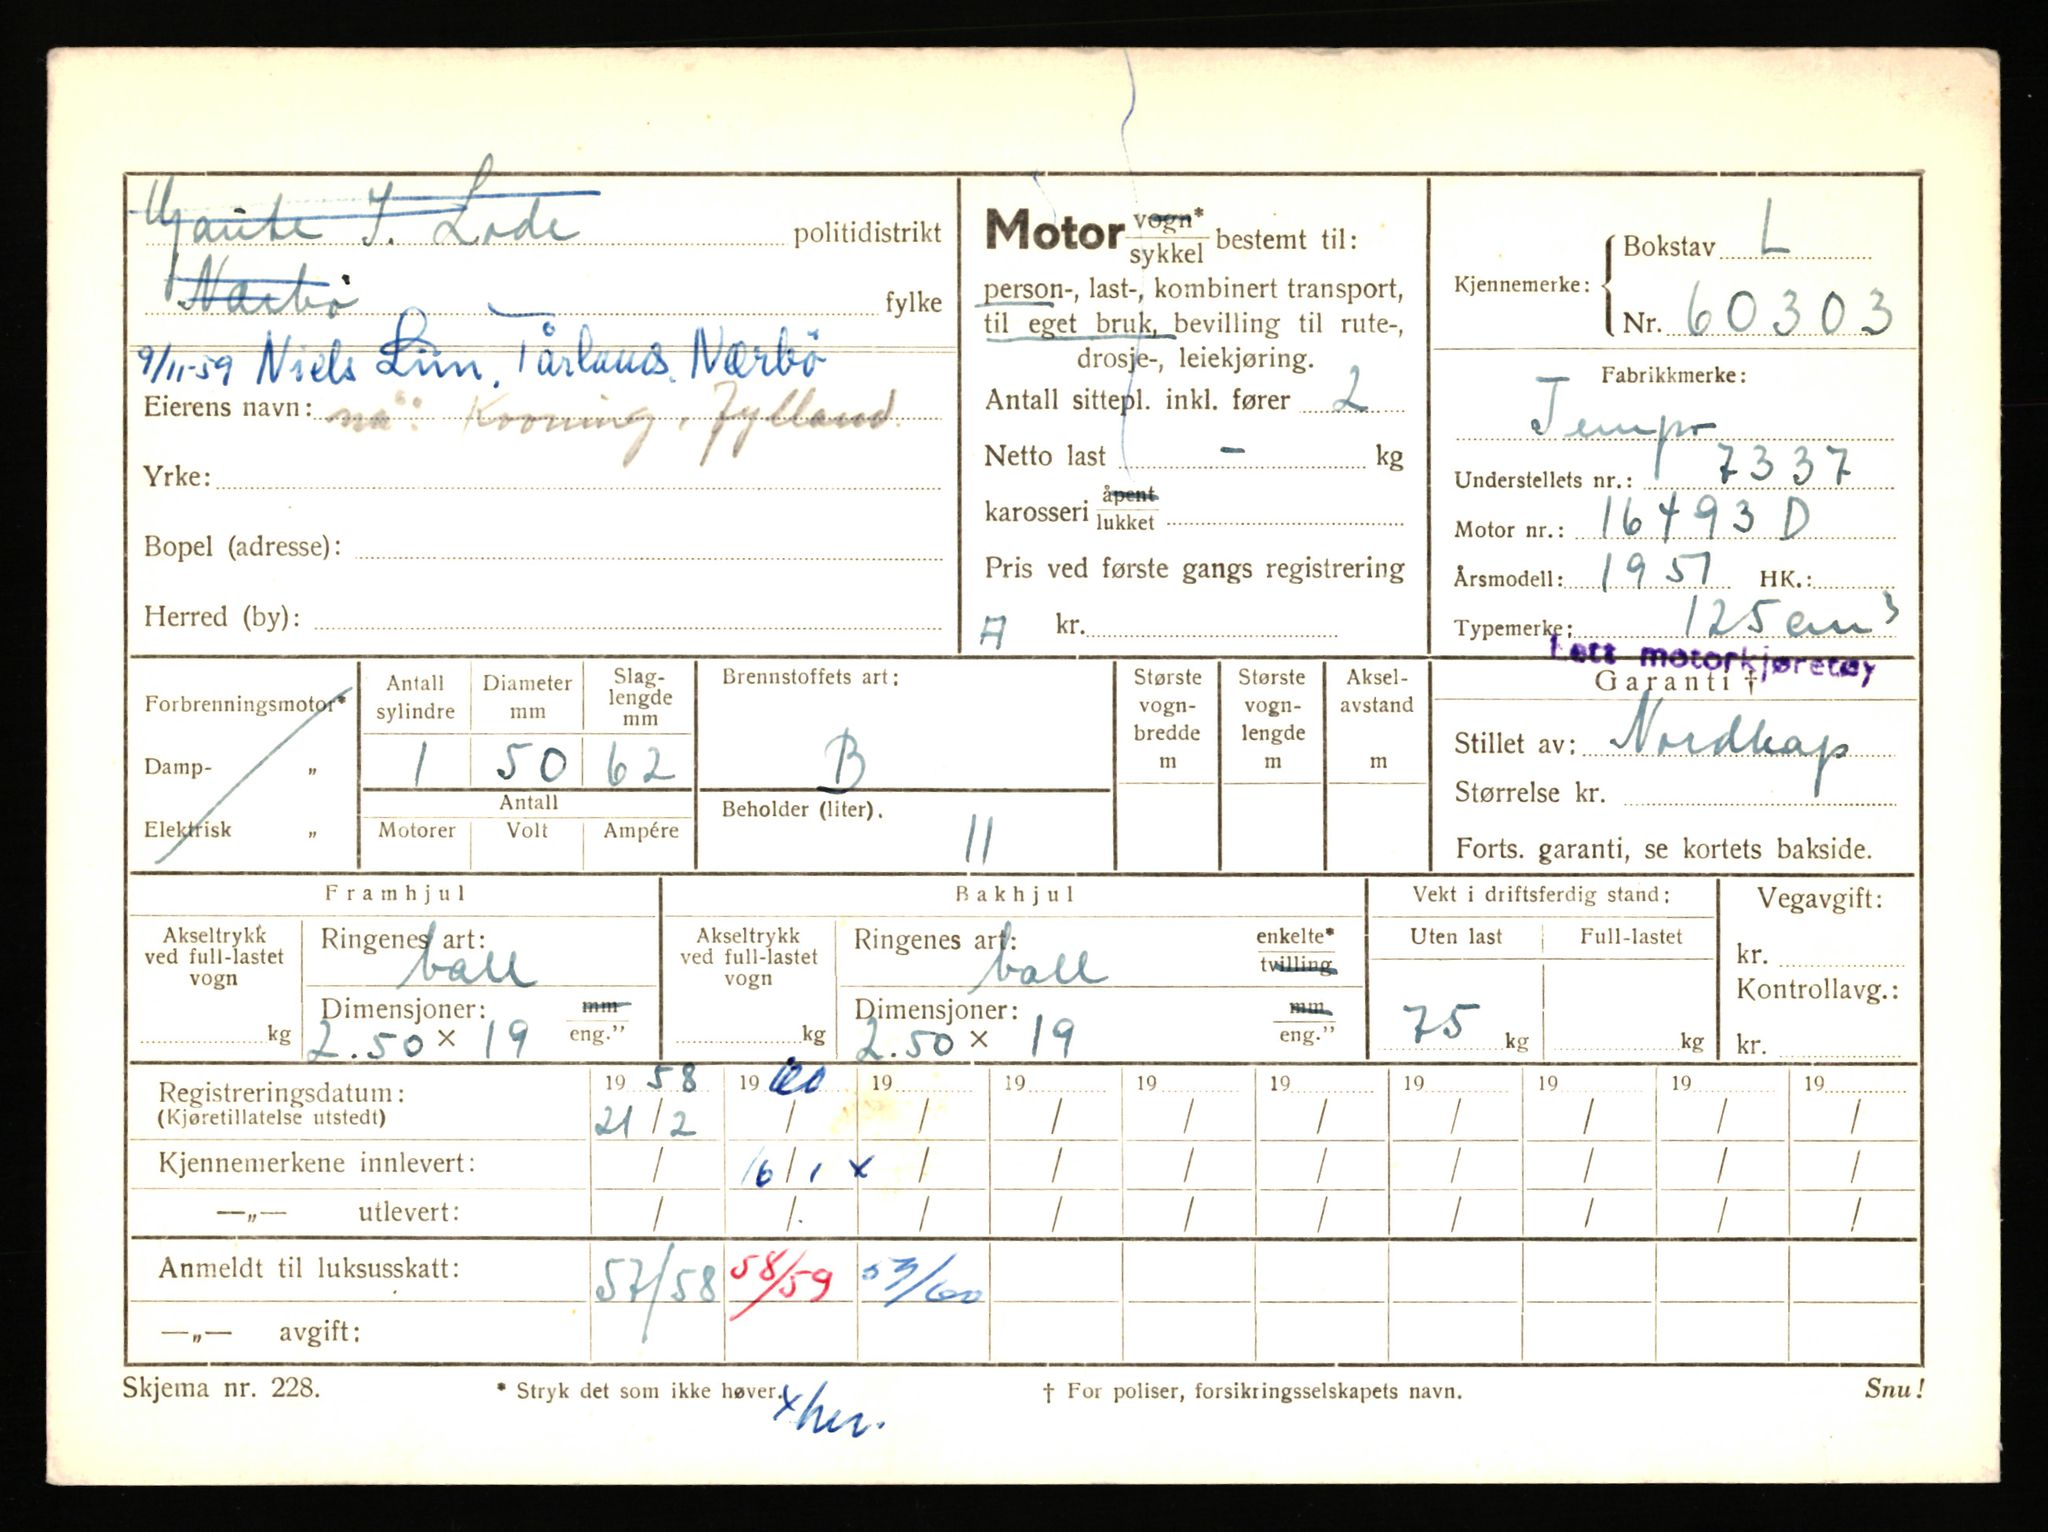 J. Lode politidistrikt
Nærbø fylke
9/11-59 Niels Lim, Tårland, Nærbö
Eierens navn: nå: Jylland.
Yrke:
Bopel (adresse):
Herred (by):
Motor vogn*/sykkel bestemt til:
person-, last-, kombinert transport,
til eget bruk, bevilling til rute-,
drosje-, leiekjøring.
Antall sittepl. inkl. fører 2
Netto last - kg
karosseri åpent/lukket
Pris ved første gangs registrering
A kr.
Kjennemerke: Bokstav L
Nr. 60303
Fabrikkmerke:
Tempo
Understellets nr.: 7337
Motor nr.: 16493 D
Årsmodell: 1957 HK.:
Typemerke: 125 cm3
Lett motorkjøretøy
Forbrenningsmotor*
Damp- „
Elektrisk „
Antall sylindre Diameter mm Slag-lengde mm
1 50 62
Antall
Motorer Volt Ampére
Brennstoffets art:
B
Beholder (liter).
11
Største vogn-bredde m
Største vogn-lengde m
Aksel-avstand m
Garanti †
Stillet av: Nordkap
Størrelse kr.
Forts. garanti, se kortets bakside.
Framhjul
Akseltrykk ved full-lastet vogn kg
Ringenes art: ball
Dimensjoner: mm/eng.”
2.50 × 19
Bakhjul
Akseltrykk ved full-lastet vogn kg
Ringenes art: ball enkelte*/tvilling
Dimensjoner: mm/eng.”
2.50 × 19
Vekt i driftsferdig stand:
Uten last Full-lastet
75 kg kg
Vegavgift:
kr.
Kontrollavg.:
kr.
Registreringsdatum: 19 58 19 60 19 19 19 19 19 19 19 19
(Kjøretillatelse utstedt) 21/2 / / / / / / / / /
Kjennemerkene innlevert: / 16/1 x / / / / / / / /
—„— utlevert: / / / / / / / / / /
Anmeldt til luksusskatt: 57/58 58/59 59/60
—„— avgift:
Skjema nr. 228. * Stryk det som ikke høver. † For poliser, forsikringsselskapets navn. Snu!
x her.